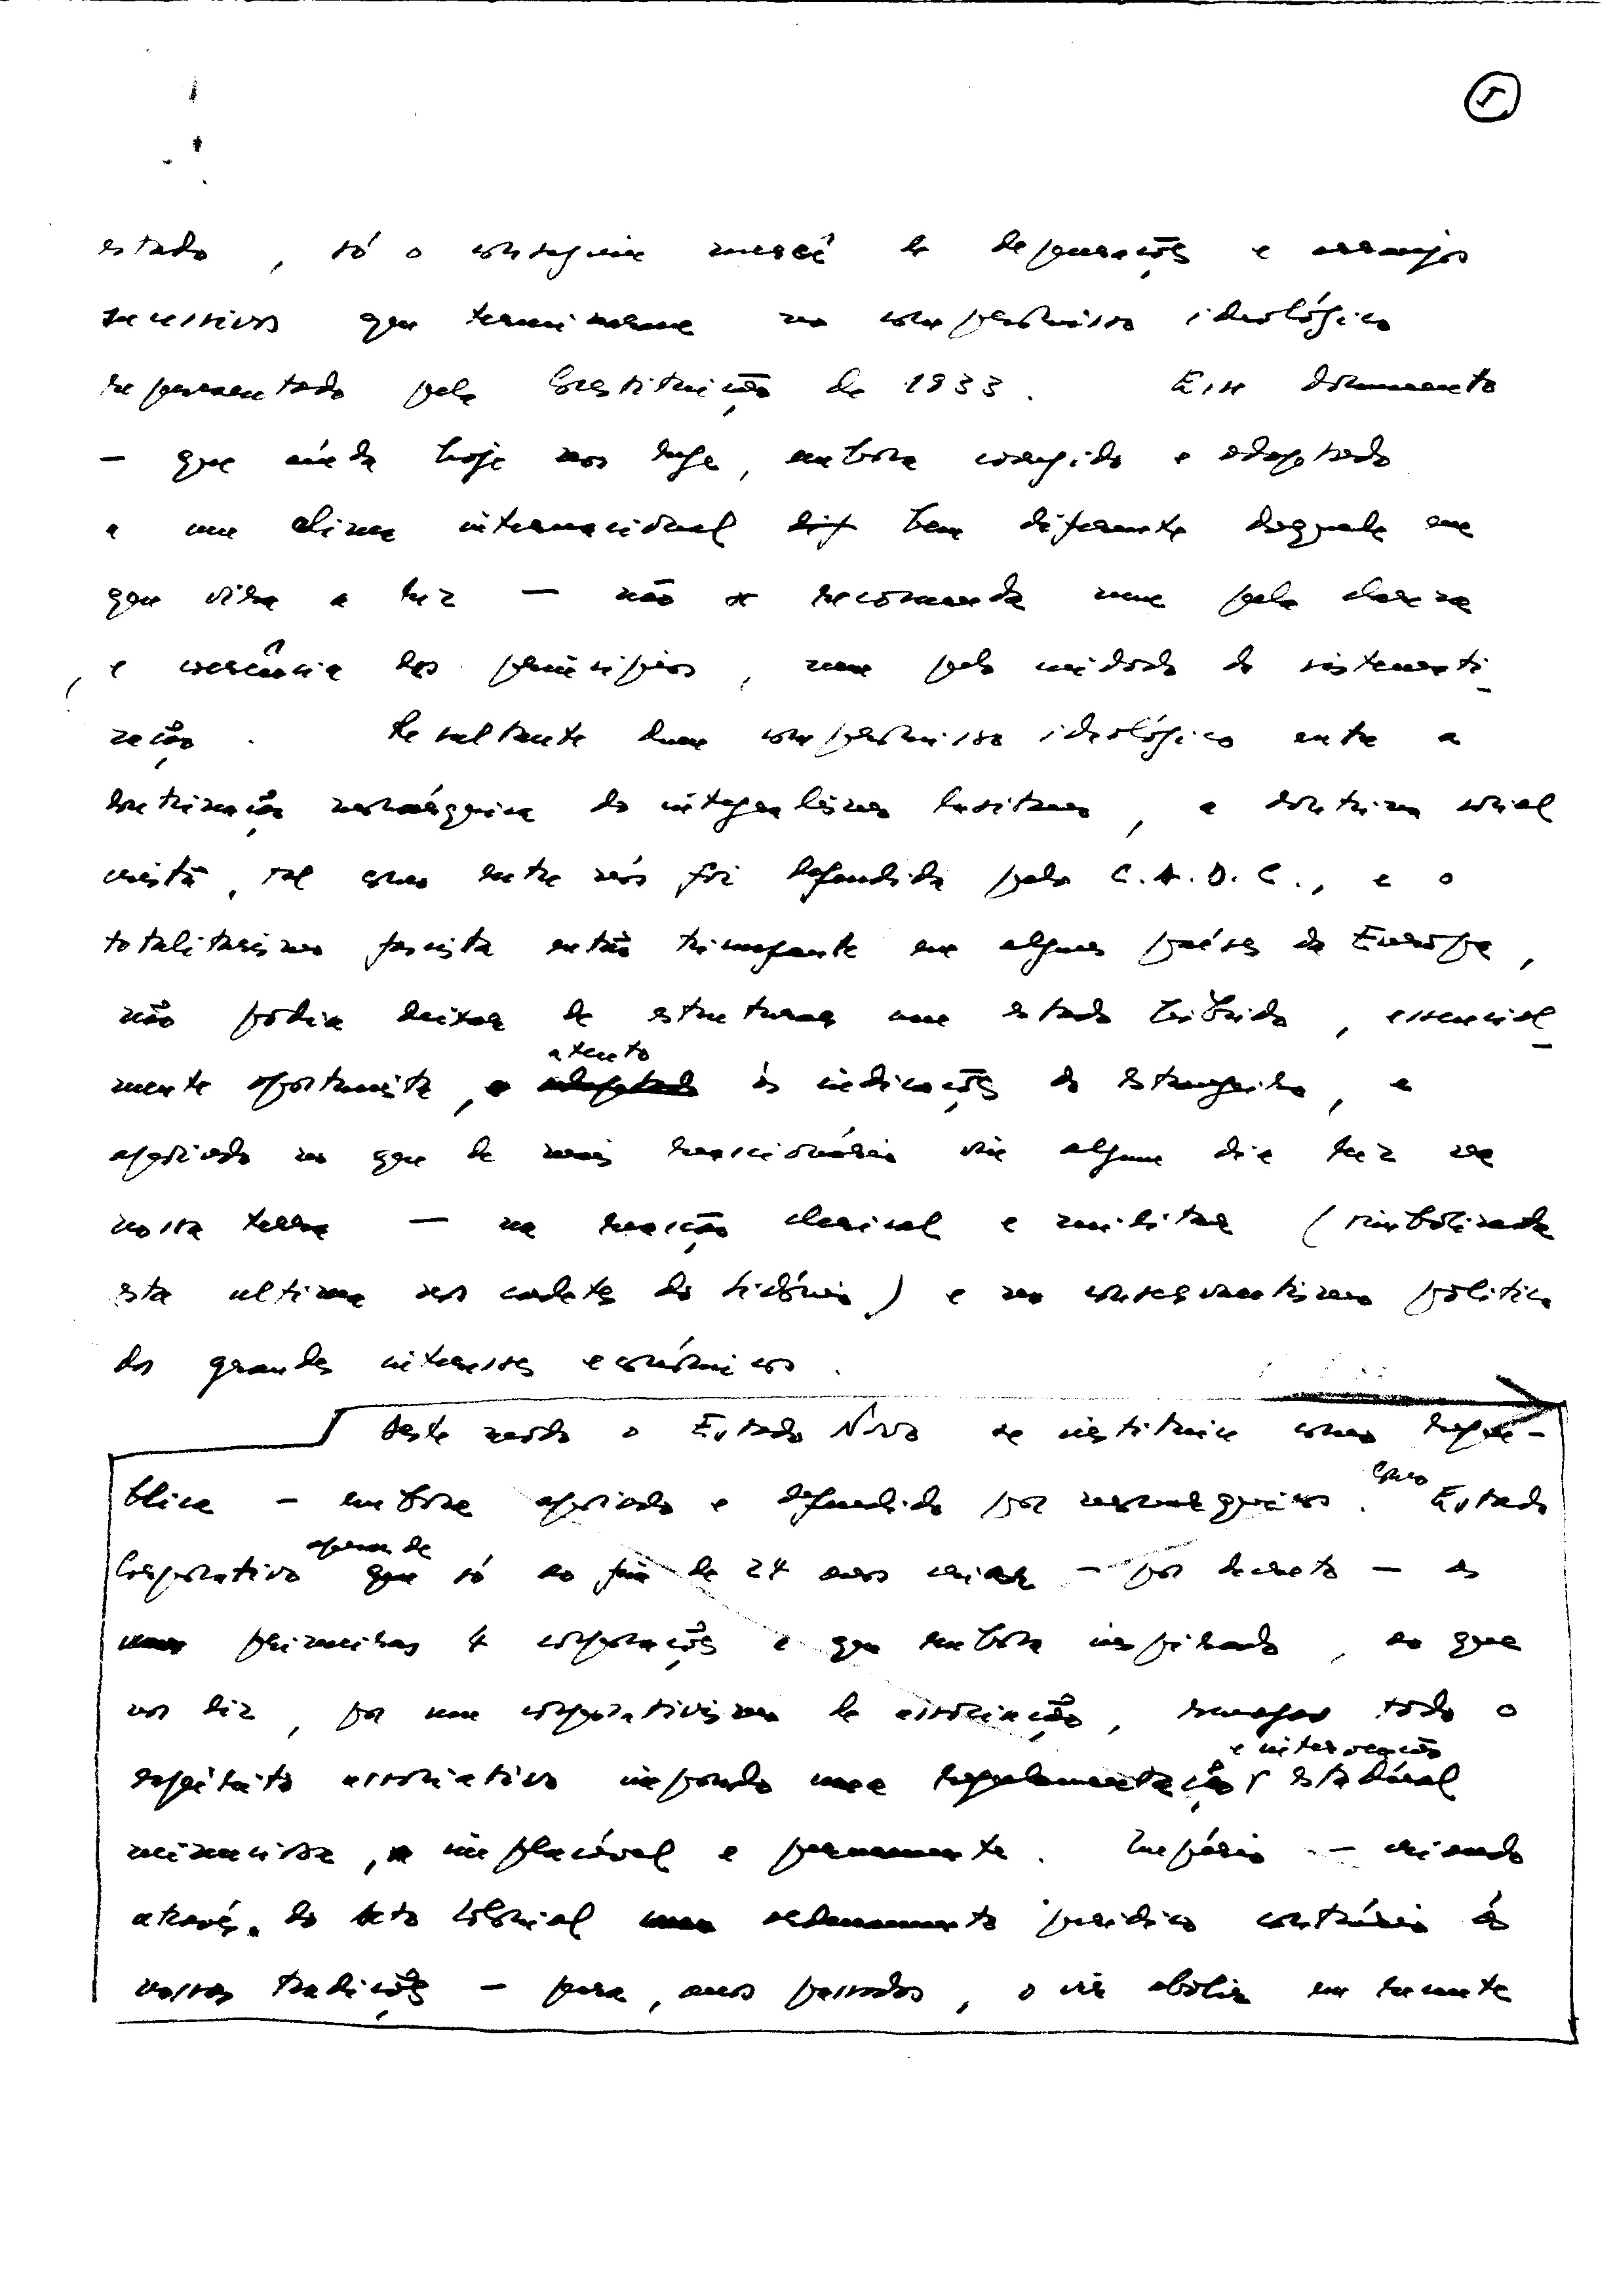 5
estado, só o conseguiu mercê de depurações e arranjos
sucessivos que terminaram no compromisso ideológico
representado pela Constituição de 1933. Esse documento
— que ainda hoje nos rege, embora corrigido e adaptado
a um clima internacional dif bem diferente daquele em
que vira a luz — não se recomenda nem pela clareza
e coerência dos princípios, nem pelo cuidado da sistemati-
zação. Resultante dum compromisso ideológico entre a
doutrinação monárquica do integralismo lusitano, a doutrina social
cristã, tal como entre nós foi defendida pelo C.A.D.C., e o
totalitarismo fascista então triunfante em alguns países da Europa,
não podia deixar de estruturar um estado híbrido, essencial-
mente oportunista, atento
às indicações do estrangeiro, e
apoiado no que de mais reaccionário viu algum dia luz na
nossa terra — na reacção clerical e militar (simbolizada
esta ultima nos cadetes do Sidónio) e no conservantismo politico
dos grandes interesses económicos.
Deste modo o Estado Novo se institui como Repú-
blica — embora apoiado e defendido por monárquicos. Como Estado
Corporativo apesar de que só ao fim de 24 anos criar — por decreto — as
primeiras 4 corporações e que embora inspirado, ao que
nos diz, por um corporativismo de associação, todo o
espírito associativo impondo uma regulamentação e intervenção estadual
minuciosa, implacável e permanente. Império — criando
através do Acto Colonial um ordenamento juridico contrário às
nossas tradições — para, anos passados, o vir abolir em